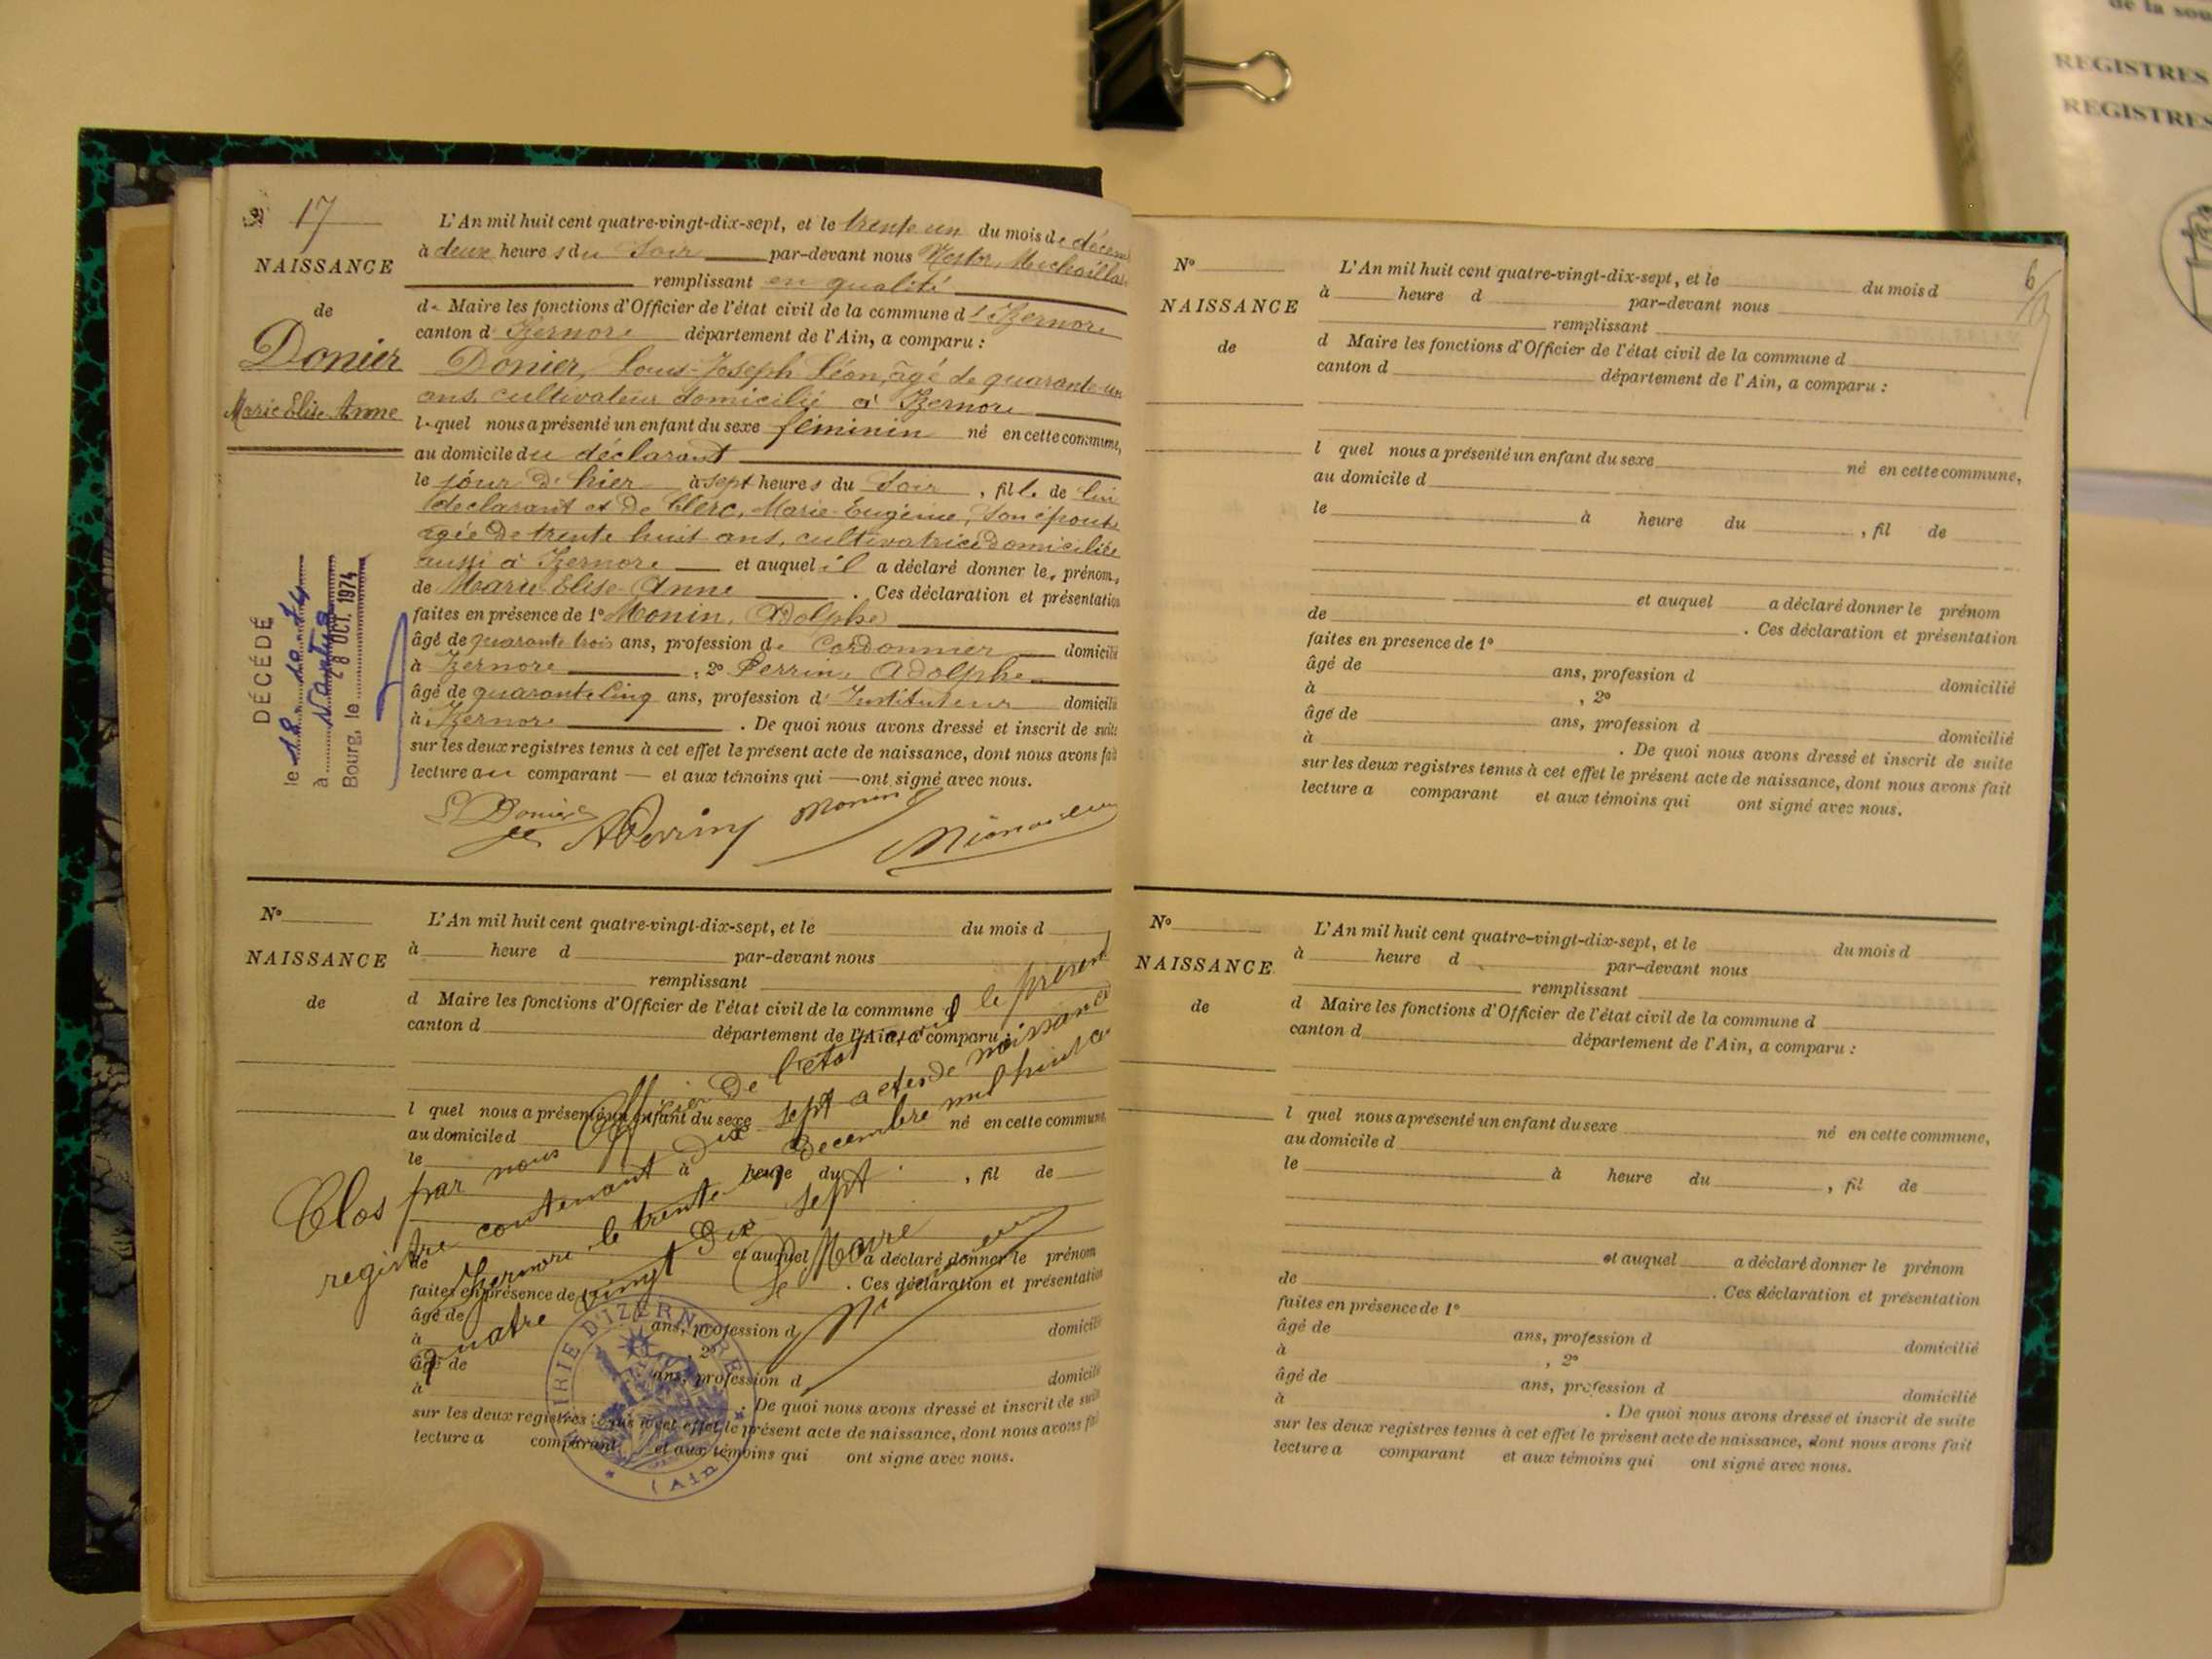 de la sou
REGISTRES
REGISTRES
Nº 17
NAISSANCE
de
Donier
Marie Elise Anne
DÉCÉDÉ
le 18.10.74
à Nantua
Bourg, le 28 OCT. 1974
L'An mil huit cent quatre-vingt-dix-sept, et le trente un du mois de décem
à deux heures du Soir par-devant nous Nestor Michaillar
remplissant en qualité
de Maire les fonctions d'Officier de l'état civil de la commune d'Izernore
canton d'Izernore département de l'Ain, a comparu :
Donier, Louis-Joseph Léon, âgé de quarante-un
ans, cultivateur domicilié à Izernore
lequel nous a présenté un enfant du sexe féminin né en cette commune,
au domicile du déclarant
le jour d'hier à sept heures du Soir, fille de lui
déclarant et de Clerc, Marie-Eugénie, son épouse
agée de trente huit ans, cultivatrice domiciliée
aussi à Izernore et auquel il a déclaré donner les prénoms
de Marie Elise Anne. Ces déclaration et présentation
faites en présence de 1º Monin, Adolphe
âgé de quarante trois ans, profession de Cordonnier domicilié
à Izernore, 2º Perrin, Adolphe
âgé de quarante cinq ans, profession d'Instituteur domicilié
à Izernore. De quoi nous avons dressé et inscrit de suite
sur les deux registres tenus à cet effet le présent acte de naissance, dont nous avons fait
lecture au comparant et aux témoins qui ont signé avec nous.
L Donier A Perrin Monin
Nº
NAISSANCE
de
L'An mil huit cent quatre-vingt-dix-sept, et le du mois d
à heure d par-devant nous
remplissant
d Maire les fonctions d'Officier de l'état civil de la commune d
canton d département de l'Ain, a comparu :
l quel nous a présenté un enfant du sexe né en cette commune
au domicile d
le à heure du , fil de
et auquel a déclaré donner le prénom
de . Ces déclaration et présentation
faites en présence de
âgé de ans, profession d domicilié
à , 2º
âgé de ans, profession d domicilié
à . De quoi nous avons dressé et inscrit de suite
sur les deux registres tenus à cet effet le présent acte de naissance, dont nous avons fait
lecture a comparant et aux témoins qui ont signé avec nous.
Clos par nous Officier de l'état civil le présent
registre contenant dix sept actes de naissance
Izernore le trente décembre mil huit c
quatre vingt dix sept
Le Maire
MAIRIE D'IZERNORE
(Ain)
6
Nº
NAISSANCE
de
L'An mil huit cent quatre-vingt-dix-sept, et le du mois d
à heure d par-devant nous
remplissant
d Maire les fonctions d'Officier de l'état civil de la commune d
canton d département de l'Ain, a comparu :
l quel nous a présenté un enfant du sexe né en cette commune,
au domicile d
le à heure du , fil de
et auquel a déclaré donner le prénom
de . Ces déclaration et présentation
faites en présence de 1º
âgé de ans, profession d domicilié
à , 2º
âgé de ans, profession d domicilié
à . De quoi nous avons dressé et inscrit de suite
sur les deux registres tenus à cet effet le présent acte de naissance, dont nous avons fait
lecture a comparant et aux témoins qui ont signé avec nous.
Nº
NAISSANCE
de
L'An mil huit cent quatre-vingt-dix-sept, et le du mois d
à heure d par-devant nous
remplissant
d Maire les fonctions d'Officier de l'état civil de la commune d
canton d département de l'Ain, a comparu :
l quel nous a présenté un enfant du sexe né en cette commune,
au domicile d
le à heure du , fil de
et auquel a déclaré donner le prénom
de . Ces déclaration et présentation
faites en présence de 1º
âgé de ans, profession d domicilié
à , 2º
âgé de ans, profession d domicilié
à . De quoi nous avons dressé et inscrit de suite
sur les deux registres tenus à cet effet le présent acte de naissance, dont nous avons fait
lecture a comparant et aux témoins qui ont signé avec nous.